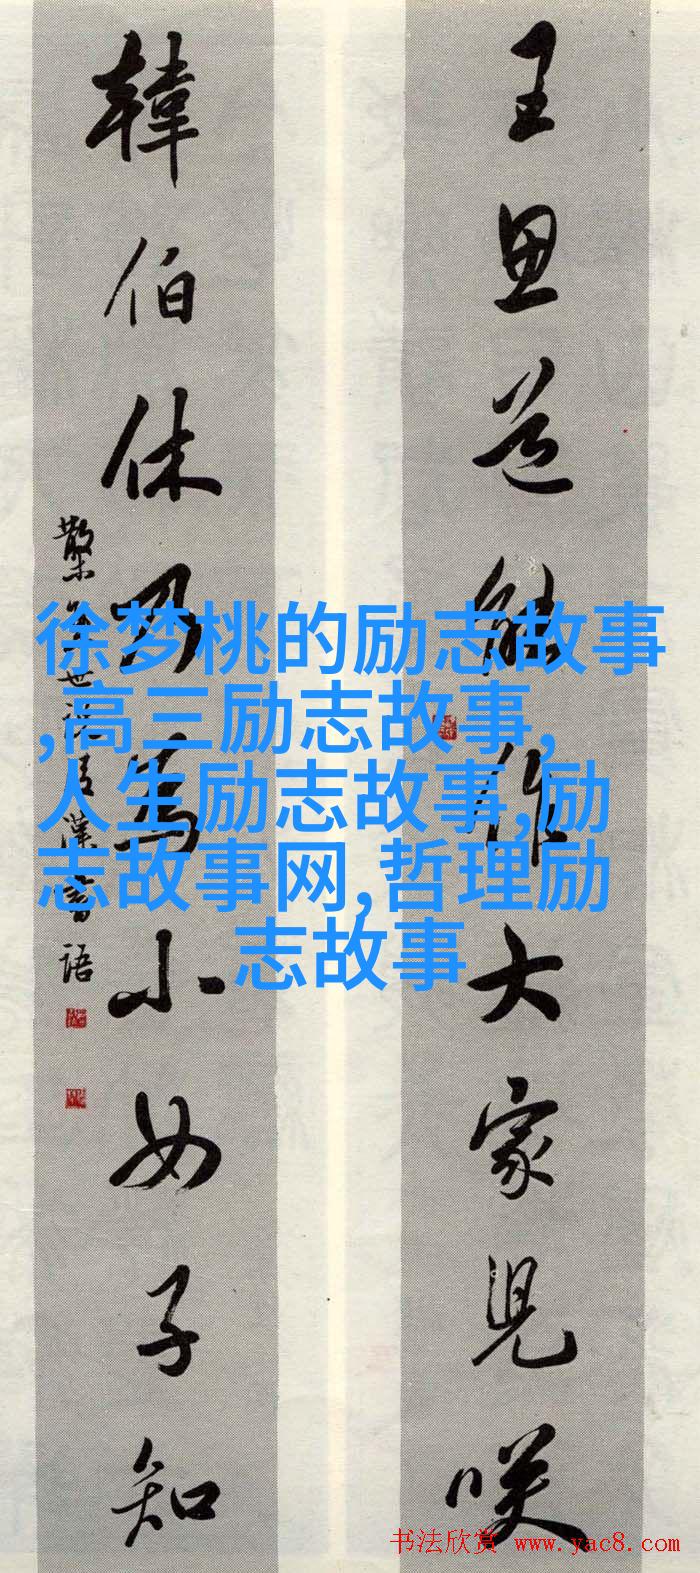 王思道能作大家兒咲
韓伯休乃為小女子知
漢書語
徐梦桃的励志故事
,高三励志故事,
人生励志故事,励
志故事网,哲理励
志故事
书法欣赏 www.yac8.com